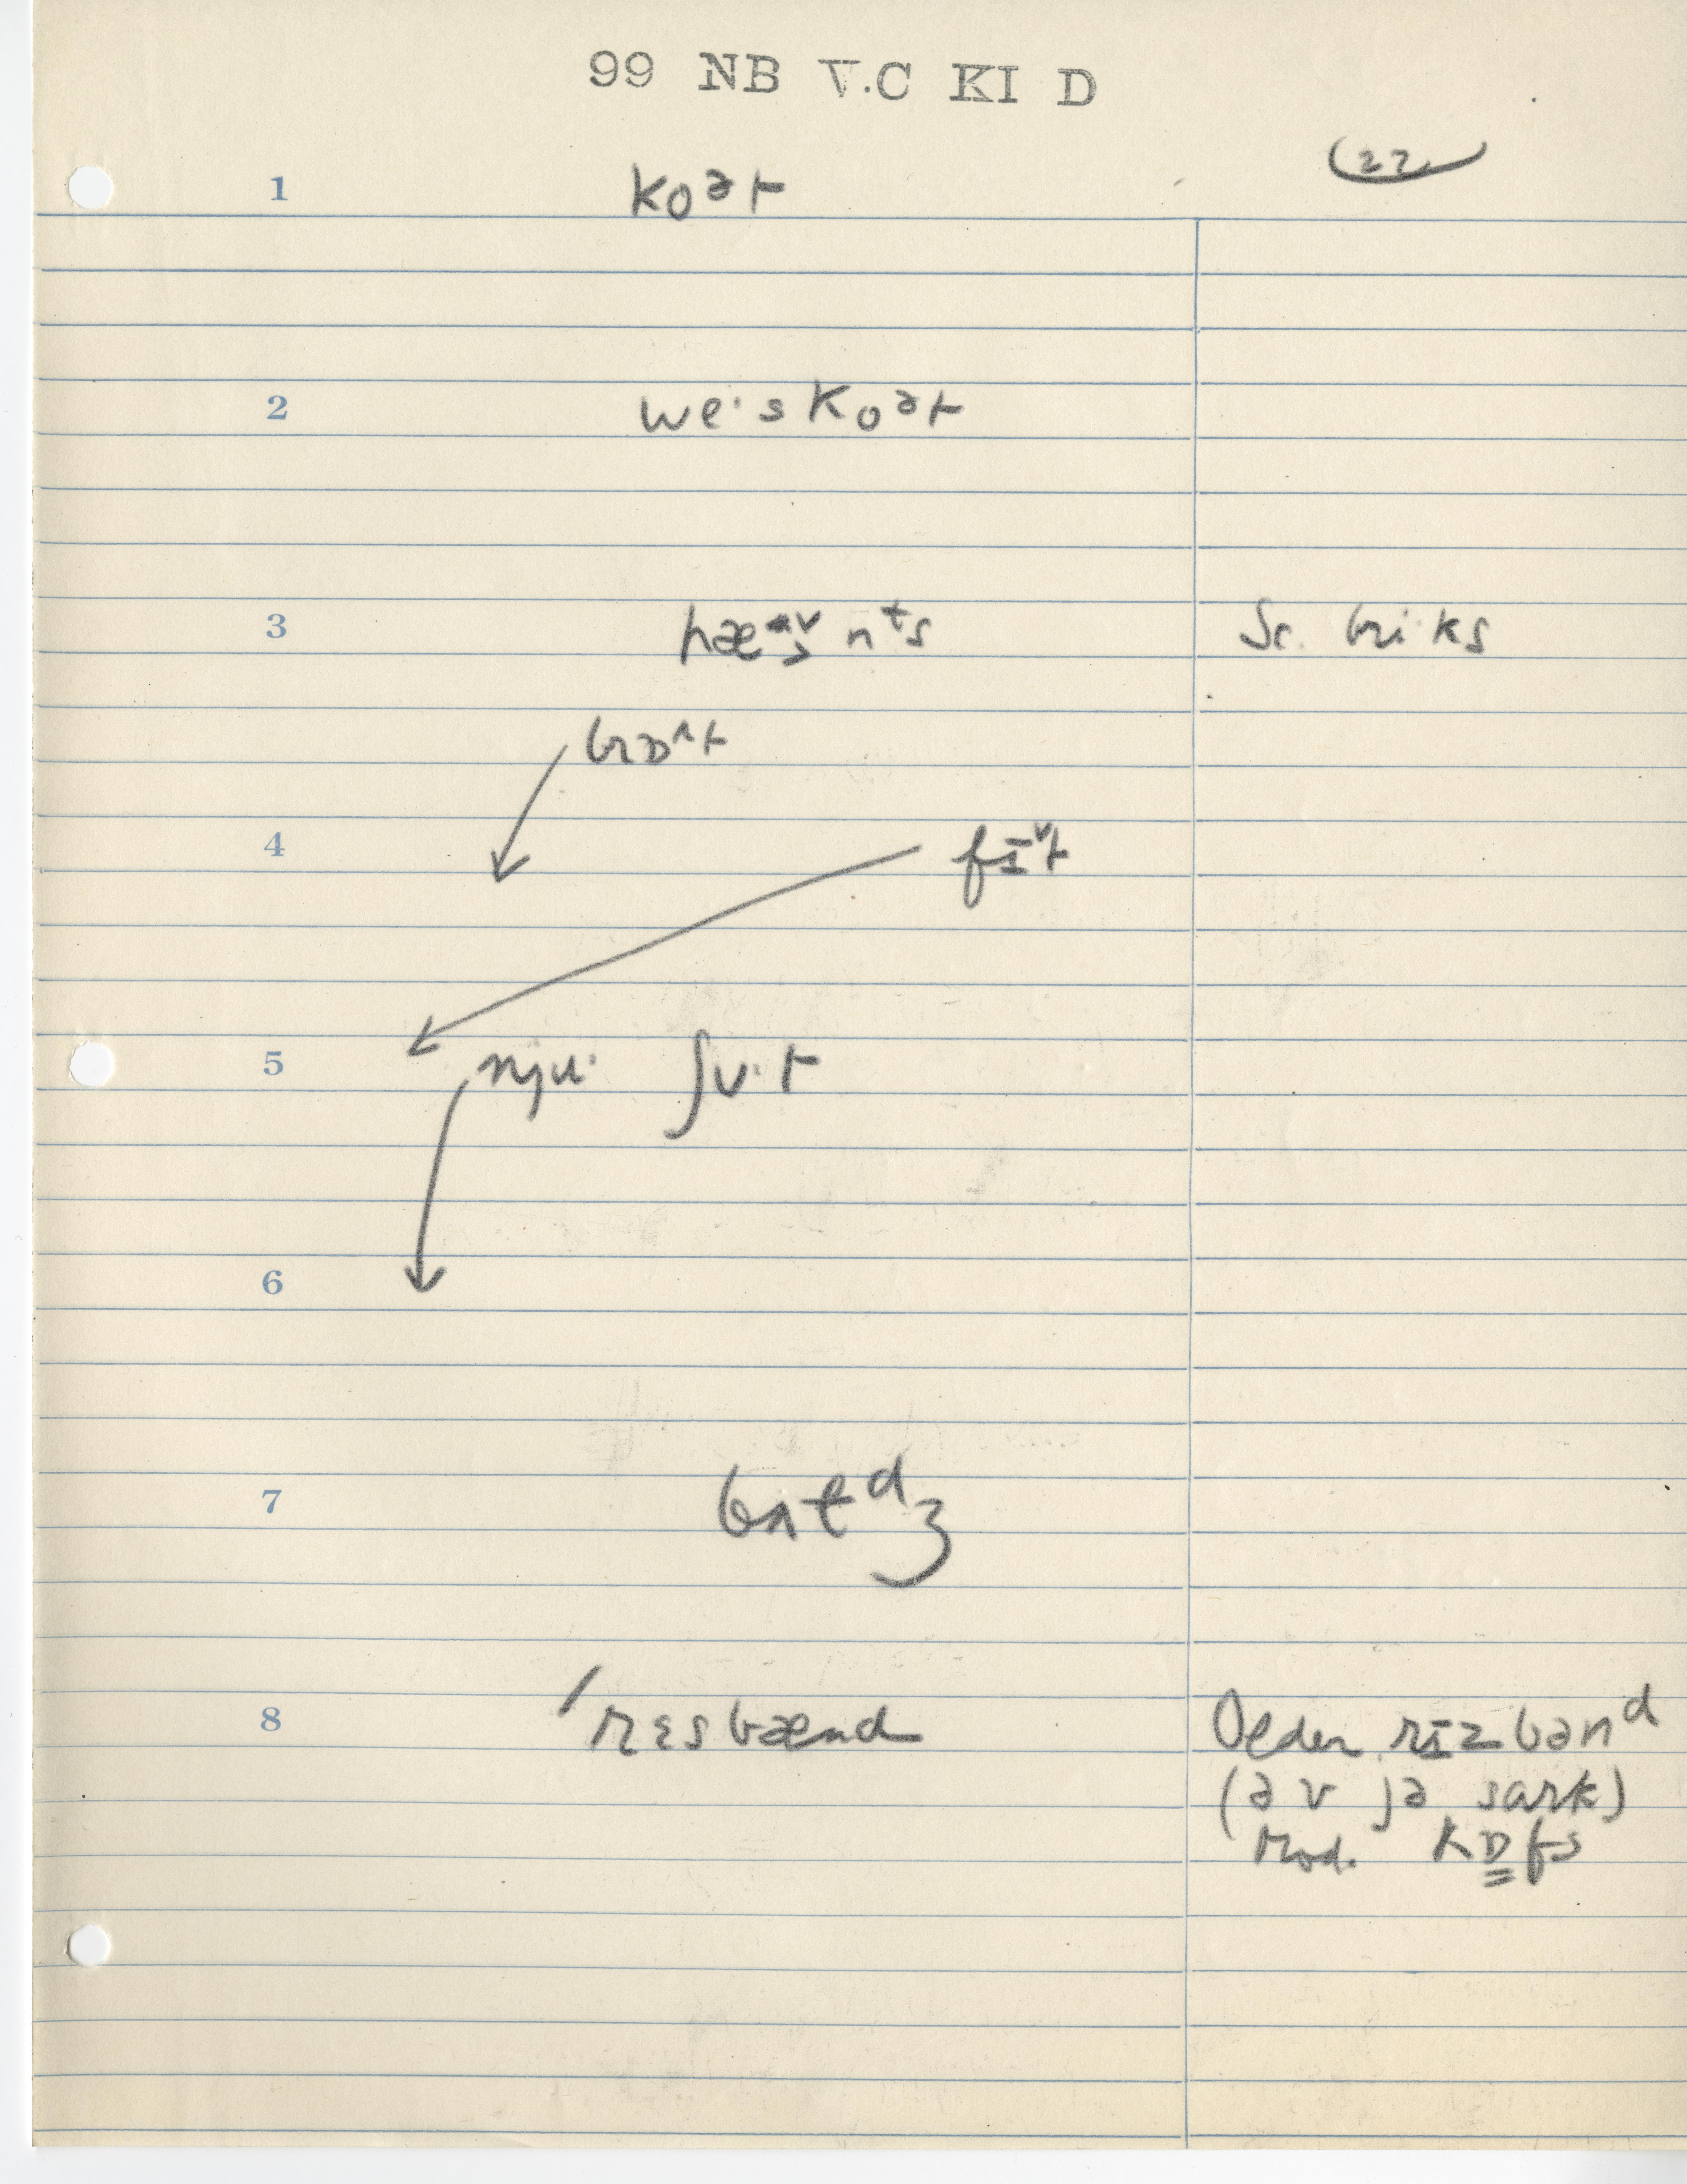 99 NB V.C KI D
22
1 koət
2 we·skoət
3 Sc. bri·ks
brɒʌt
4 fɪt
5 nju· ʃu·t
6
7
8 ˈrɛsbænd Older rɪzbənᵈ
(əv jə sark)
Mod. kɒfs